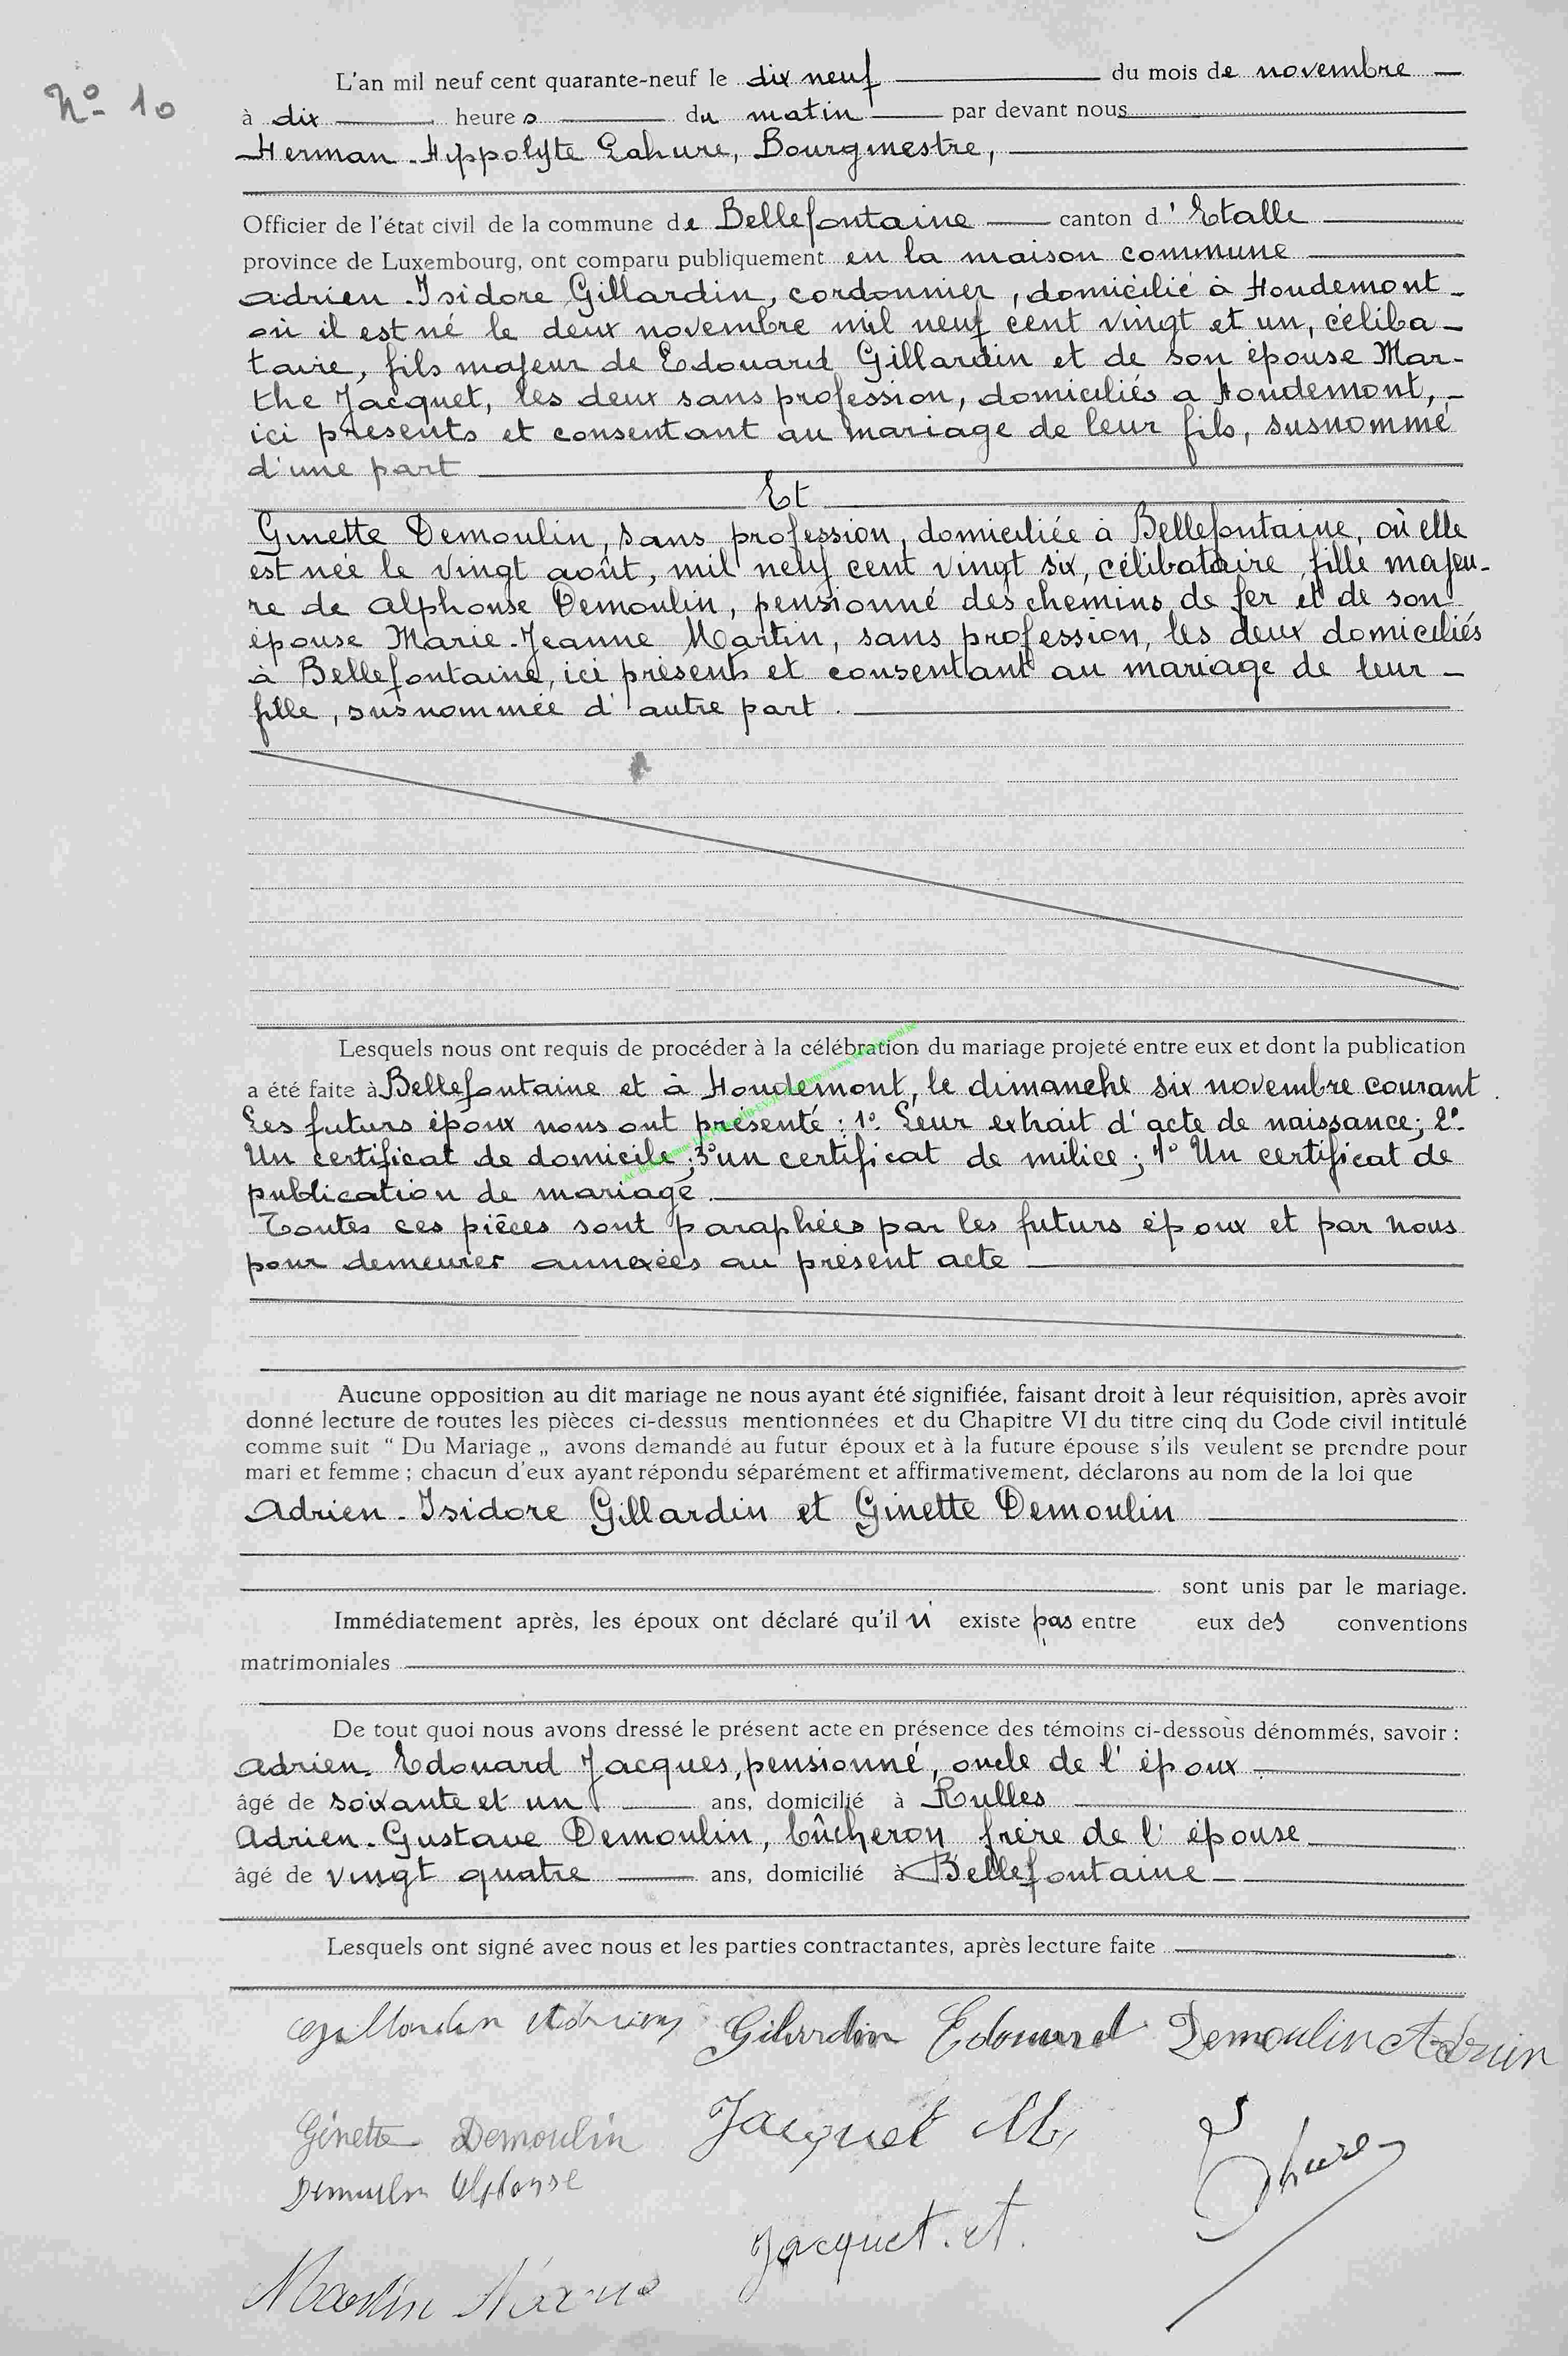 Nº 10
L'an mil neuf cent quarante-neuf le dix neuf du mois de novembre
à dix heures du matin par devant nous
Herman-Hyppolyte Lahure, Bourgmestre,
Officier de l'état civil de la commune de Bellefontaine canton d' Etalle
province de Luxembourg, ont comparu publiquement en la maison commune
Adrien-Isidore Gillardin, cordonnier, domicilié à Houdemont
où il est né le deux novembre mil neuf cent vingt et un, céliba-
taire, fils majeur de Edouard Gillardin et de son épouse Mar-
the Jacquet, les deux sans profession, domiciliés a Houdemont,
ici présents et consentant au mariage de leur fils, susnommé
d'une part
Et
Ginette Demoulin, sans profession, domiciliée à Bellefontaine, où elle
est née le vingt août, mil neuf cent vingt six, célibataire, fille majeu-
re de Alphonse Demoulin, pensionné des chemins de fer et de son
épouse Marie-Jeanne Martin, sans profession, les deux domiciliés
à Bellefontaine, ici présents et consentant au mariage de leur
fille, susnommée d'autre part.
Lesquels nous ont requis de procéder à la célébration du mariage projeté entre eux et dont la publication
a été faite à Bellefontaine et à Houdemont, le dimanche six novembre courant
Les futurs époux nous ont présenté : 1º Leur extrait d'acte de naissance; 2º
Un certificat de domicile; 3º un certificat de milice; 4º Un certificat de
publication de mariage.
Toutes ces pièces sont paraphées par les futurs époux et par nous
pour demeurer annexées au présent acte
Aucune opposition au dit mariage ne nous ayant été signifiée, faisant droit à leur réquisition, après avoir
donné lecture de toutes les pièces ci-dessus mentionnées et du Chapitre VI du titre cinq du Code civil intitulé
comme suit “ Du Mariage „ avons demandé au futur époux et à la future épouse s'ils veulent se prendre pour
mari et femme ; chacun d'eux ayant répondu séparément et affirmativement, déclarons au nom de la loi que
Adrien-Isidore Gillardin et Ginette Demoulin
sont unis par le mariage.
Immédiatement après, les époux ont déclaré qu'il n' existe pas entre eux des conventions
matrimoniales
De tout quoi nous avons dressé le présent acte en présence des témoins ci-dessous dénommés, savoir :
Adrien-Edouard Jacques, pensionné, oncle de l'époux
âgé de soixante et un ans, domicilié à Rulles
Adrien-Gustave Demoulin, bûcheron frère de l'épouse
âgé de vingt quatre ans, domicilié à Bellefontaine
Lesquels ont signé avec nous et les parties contractantes, après lecture faite
Gillardin Adrien Gilardin Edouard Demoulin Adrien
Ginette Demoulin Jacquet M. Lahure
Demoulin Alphonse
Jacquet. A.
Martin